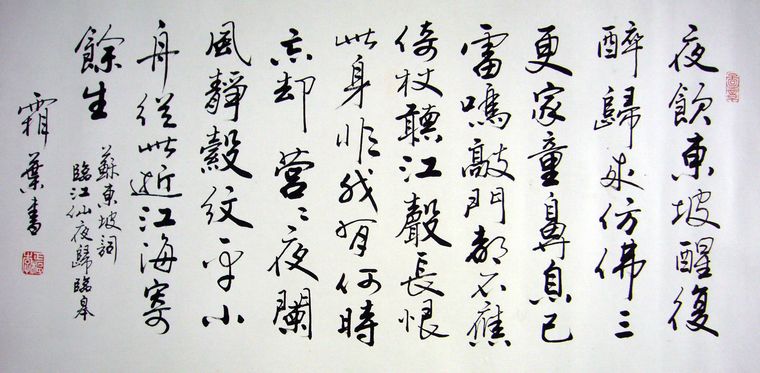 夜飲東坡醒復
醉歸來仿佛三
更家童鼻息已
雷鳴敲門都不應
倚杖聽江聲長恨
此身非我有何時
忘却營〻夜闌
風靜縠紋平小
舟從此逝江海寄
餘生
蘇東坡詞
臨江仙夜歸臨皋
霜葉書